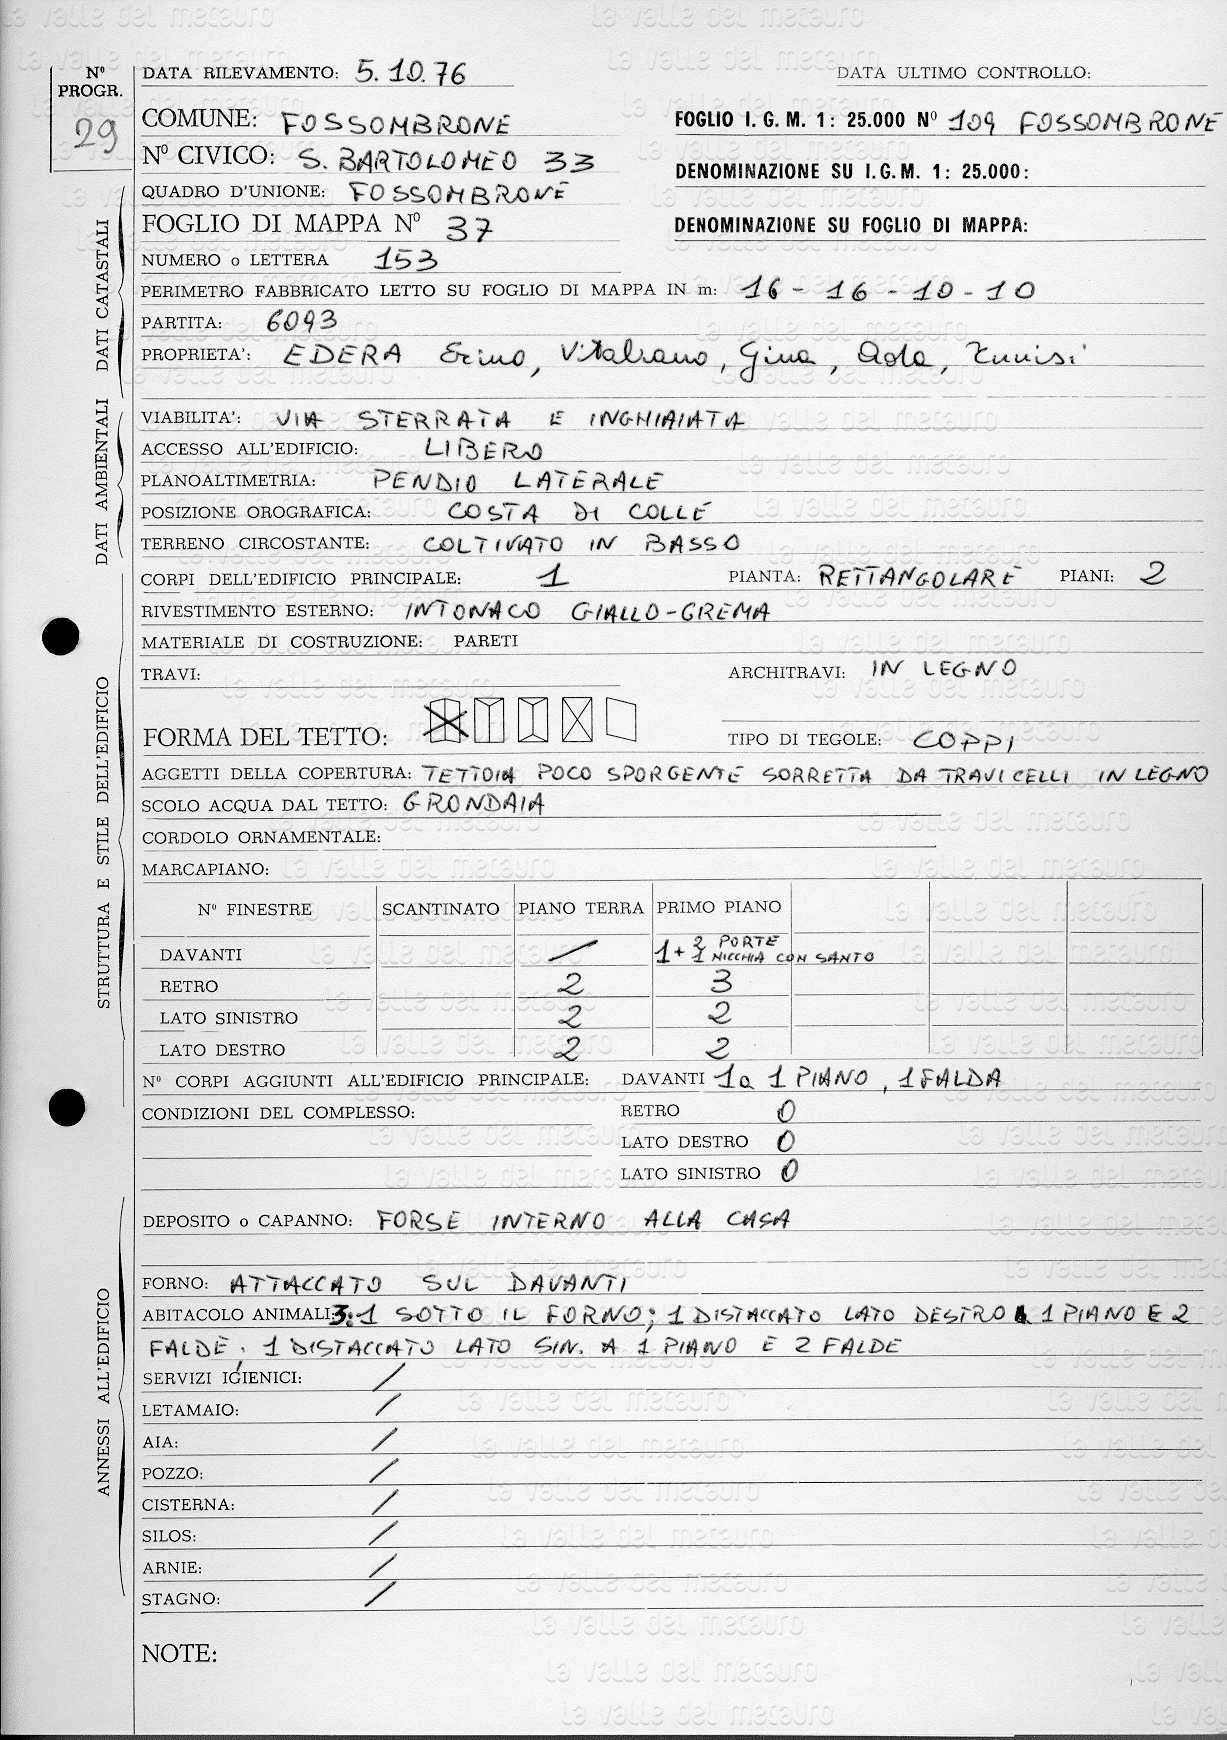 Nº PROGR. 29
DATA RILEVAMENTO: 5.10.76 DATA ULTIMO CONTROLLO:
COMUNE: FOSSOMBRONE FOGLIO I. G. M. 1: 25.000 Nº 109 FOSSOMBRONE
Nº CIVICO: S. BARTOLOMEO 33 DENOMINAZIONE SU I.G.M. 1: 25.000:
QUADRO D'UNIONE: FOSSOMBRONE
FOGLIO DI MAPPA Nº 37 DENOMINAZIONE SU FOGLIO DI MAPPA:
NUMERO o LETTERA 153
PERIMETRO FABBRICATO LETTO SU FOGLIO DI MAPPA IN m: 16 - 16 - 10 - 10
PARTITA: 6093
PROPRIETA': EDERA Erino, Vitaliano, Gina, Ada,
DATI CATASTALI
VIABILITA': VIA STERRATA E INGHIAIATA
ACCESSO ALL'EDIFICIO: LIBERO
PLANOALTIMETRIA: PENDIO LATERALE
POSIZIONE OROGRAFICA: COSTA DI COLLE
TERRENO CIRCOSTANTE: COLTIVATO IN BASSO
DATI AMBIENTALI
CORPI DELL'EDIFICIO PRINCIPALE: 1 PIANTA: RETTANGOLARE PIANI: 2
RIVESTIMENTO ESTERNO: INTONACO GIALLO-CREMA
MATERIALE DI COSTRUZIONE: PARETI
TRAVI: ARCHITRAVI: IN LEGNO
FORMA DEL TETTO: TIPO DI TEGOLE: COPPI
AGGETTI DELLA COPERTURA: TETTOIA POCO SPORGENTE SORRETTA DA TRAVICELLI IN LEGNO
SCOLO ACQUA DAL TETTO: GRONDAIA
CORDOLO ORNAMENTALE:
MARCAPIANO:
STRUTTURA E STILE DELL'EDIFICIO
Nº FINESTRE SCANTINATO PIANO TERRA PRIMO PIANO
DAVANTI / 1+ 2 PORTE 1 NICCHIA CON SANTO
RETRO 2 3
LATO SINISTRO 2 2
LATO DESTRO 2 2
Nº CORPI AGGIUNTI ALL'EDIFICIO PRINCIPALE: DAVANTI 1 a 1 PIANO, 1 FALDA
CONDIZIONI DEL COMPLESSO: RETRO 0
LATO DESTRO 0
LATO SINISTRO 0
DEPOSITO o CAPANNO: FORSE INTERNO ALLA CASA
FORNO: ATTACCATO SUL DAVANTI
ABITACOLO ANIMALI: 3: 1 SOTTO IL FORNO; 1 DISTACCATO LATO DESTRO A 1 PIANO E 2
FALDE; 1 DISTACCATO LATO SIN. A 1 PIANO E 2 FALDE
SERVIZI IGIENICI: /
LETAMAIO: /
AIA: /
POZZO: /
CISTERNA: /
SILOS: /
ARNIE: /
STAGNO: /
ANNESSI ALL'EDIFICIO
NOTE:
la valle del metauro